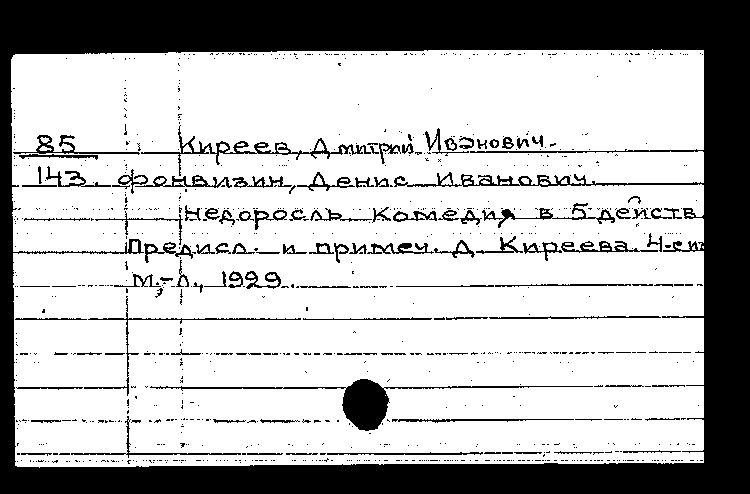 85 Киреев, Дмитрий Иванович.
143. Фонвизин, Денис Иванович.
Недоросль. Комедия в 5 действ.
Предисл. и примеч. Д. Киреева. 4-е
М.,-Л., 1929.